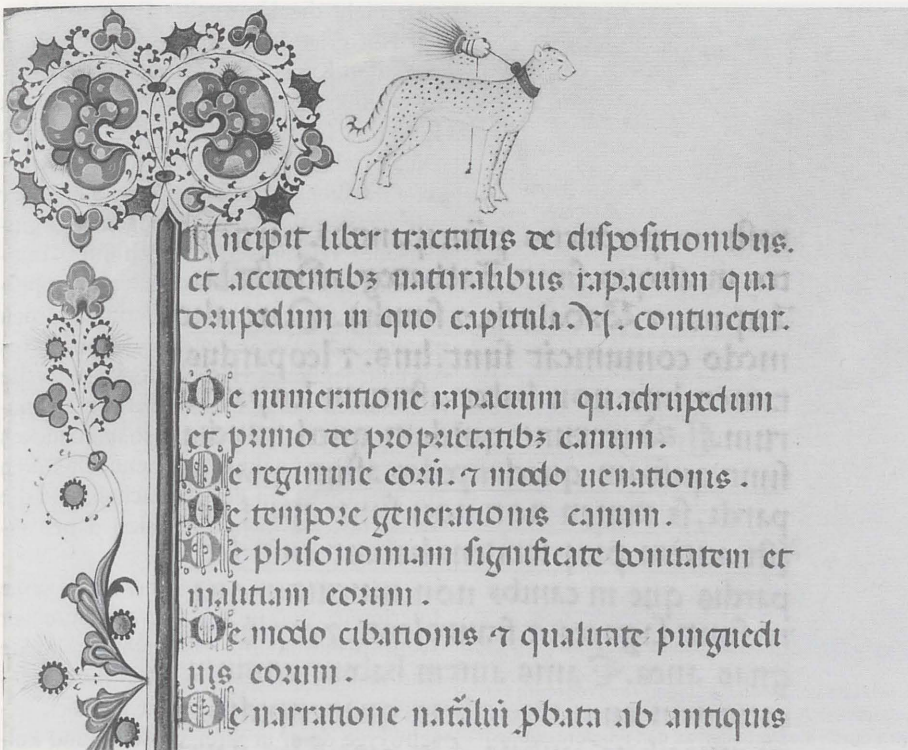 Incipit liber tractatus de dispositionibus.
et accidentibꝫ naturalibus rapacium qua
drupedum in quo capitula .XI. continetur.
De numeratione rapacium quadrupedum
et primo de proprietatibꝫ canum.
De regimine eorū. ⁊ modo uenationis.
De tempore generationis canum.
De phisonomiam significate bonitatem et
malitiam eorum.
De modo cibationis ⁊ qualitate pinguedi
nis eorum.
De narratione nat̄aliū ꝓbata ab antiquis